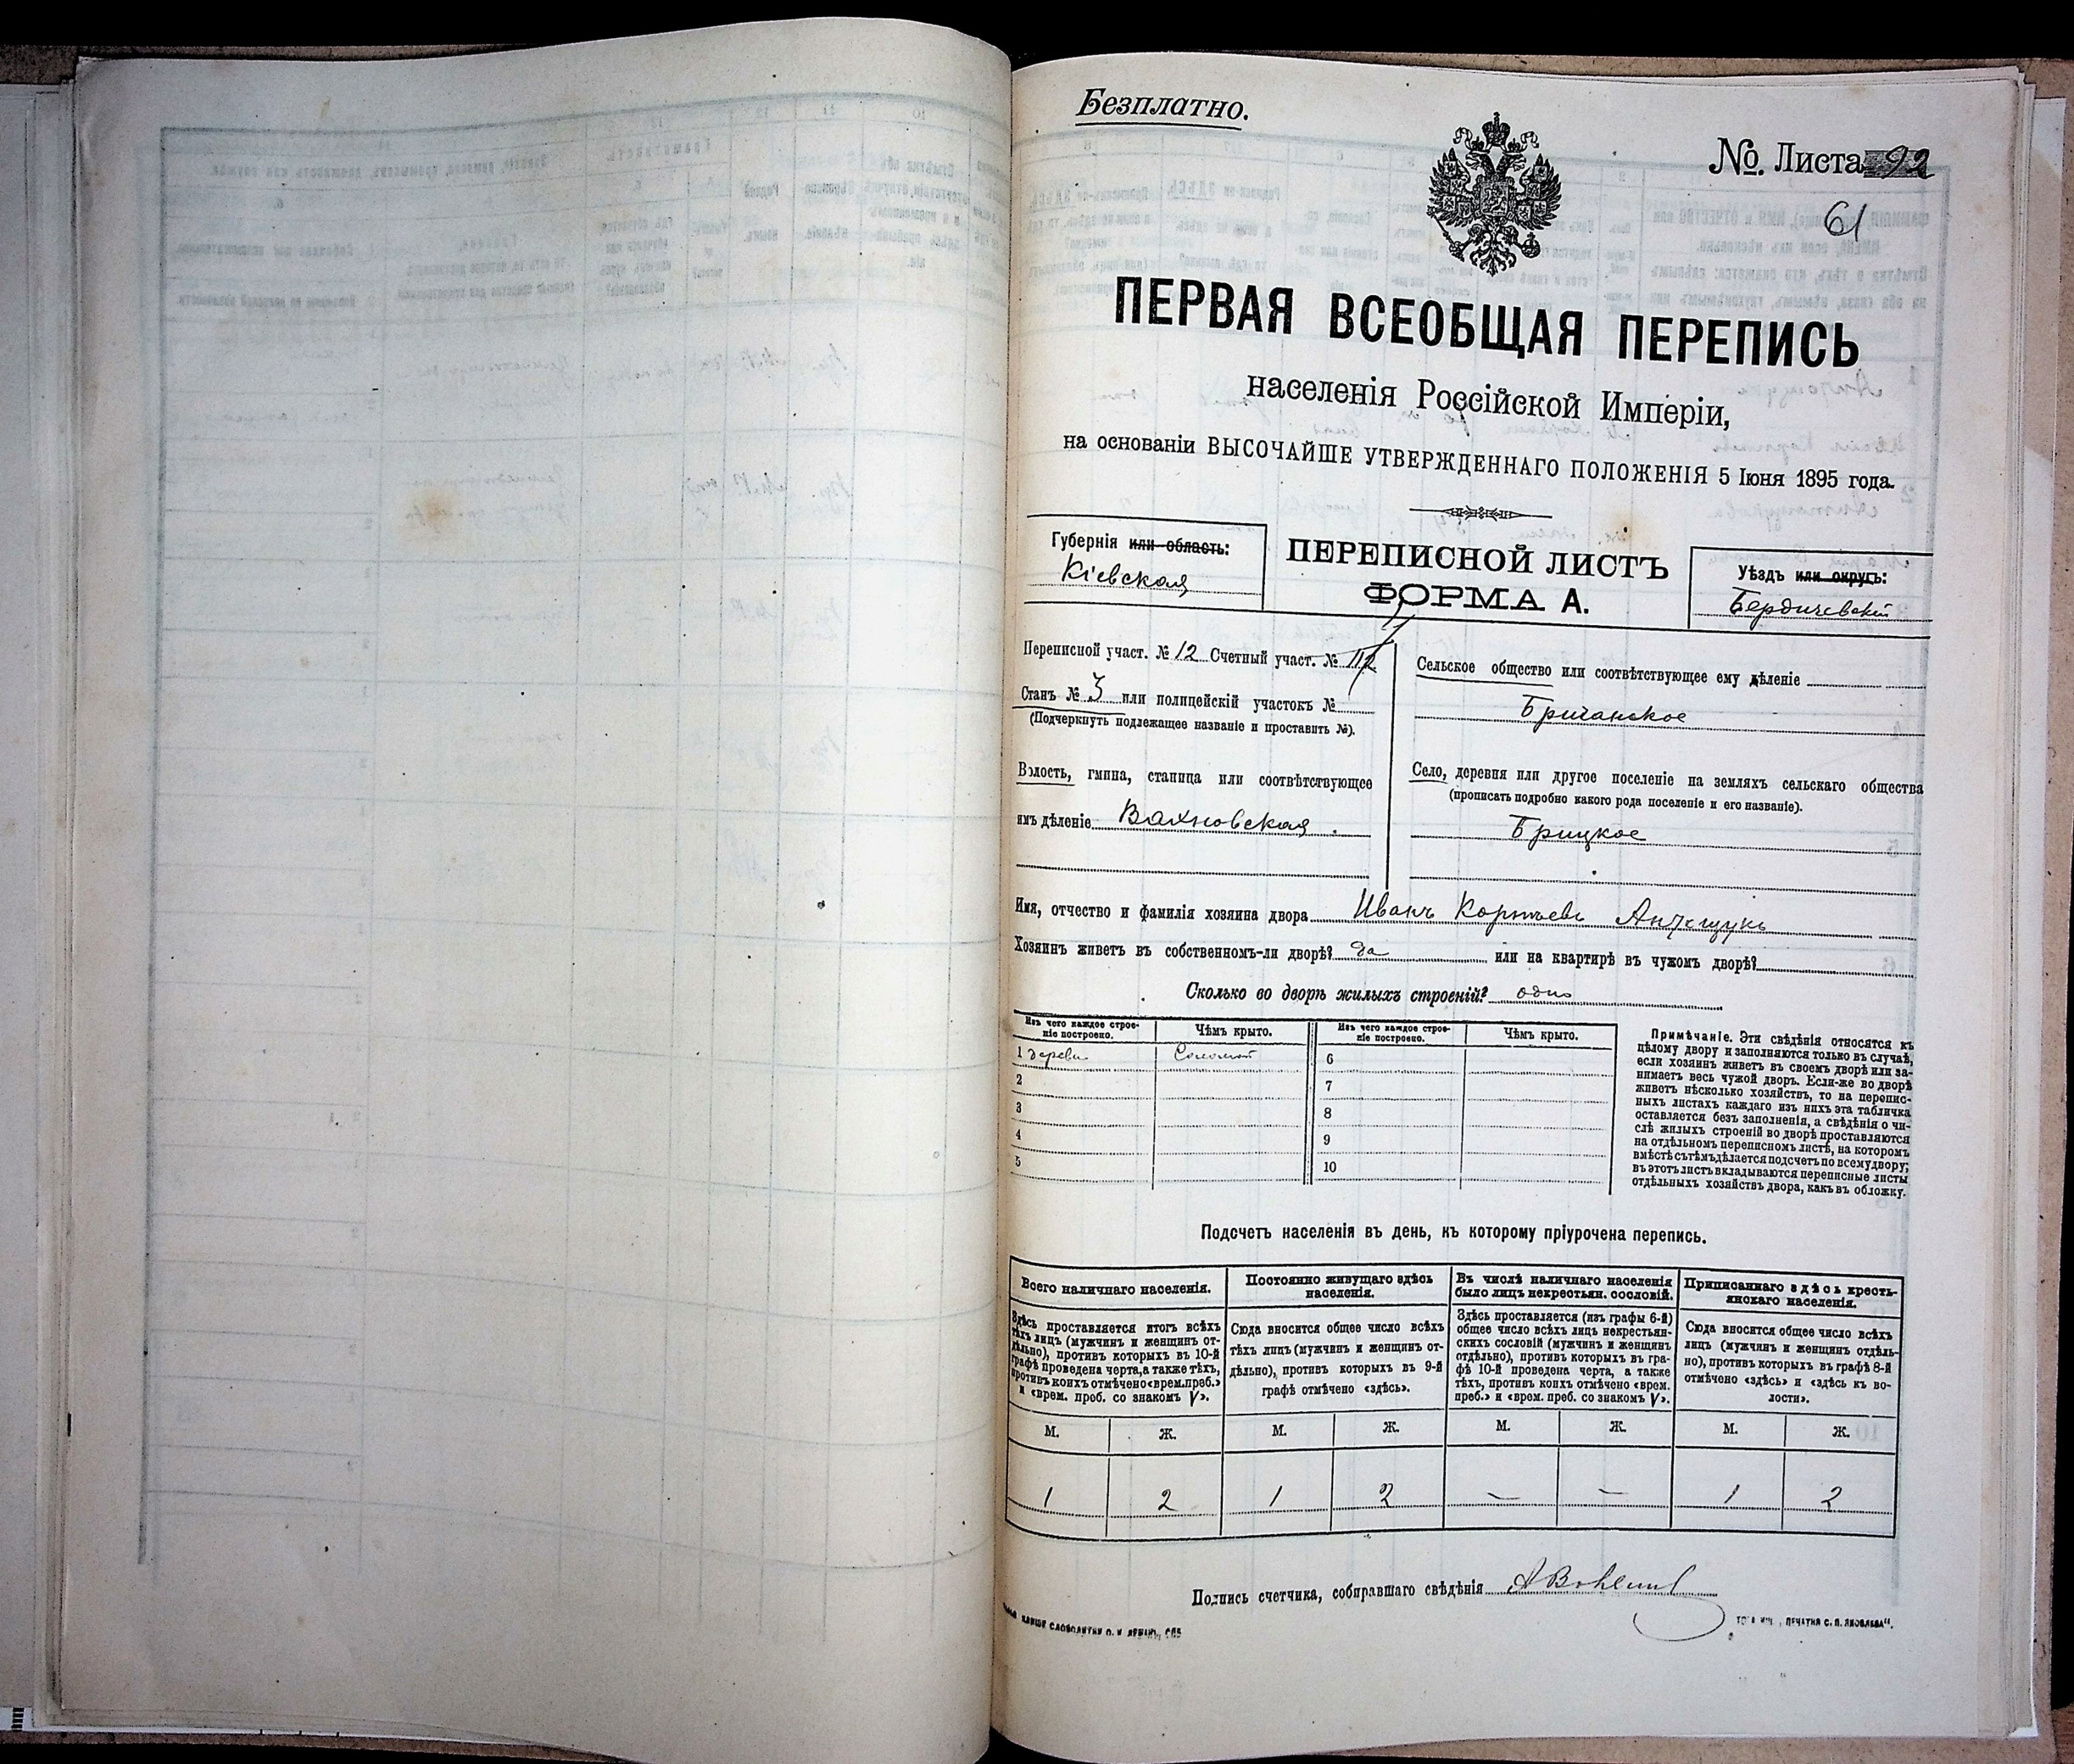 Безплатно.
№ Листа 92
61
ПЕРВАЯ ВСЕОБЩАЯ ПЕРЕПИСЬ
населенія Россійской Имперіи,
на основаніи ВЫСОЧАЙШЕ УТВЕРЖДЕННАГО ПОЛОЖЕНІЯ 5 Іюня 1895 года.
Губернія или область:
Кіевская
ПЕРЕПИСНОЙ ЛИСТЪ
ФОРМА А.
Уѣздъ или округъ:
Бердичевскій
Переписной участ. № 12 Счетный участ. №
Станъ № 3 или полицейскій участокъ №
(Подчеркнуть подлежащее названіе и проставить №).
Волость, гмина, станица или соотвѣтствующее
имъ дѣленіе Вахновская.
Сельское общество или соотвѣтствующее ему дѣленіе
Бричанское
Село, деревня или другое поселеніе на земляхъ сельскаго общества
(прописать подробно какого рода поселеніе и его названіе).
Брицкое
Имя, отчество и фамилія хозяина двора Иванъ
Хозяинъ живетъ въ собственномъ-ли дворѣ? да или на квартирѣ въ чужомъ дворѣ?
Сколько во дворѣ жилыхъ строеній? одно
Изъ чего каждое строе-
ніе построено.
Чѣмъ крыто.
Изъ чего каждое строе-
ніе построено.
Чѣмъ крыто.
1 дерева 6
2 7
3 8
4 9
5 10
Примѣчаніе. Эти свѣдѣнія относятся къ
цѣлому двору и заполняются только въ случаѣ,
если хозяинъ живетъ въ своемъ дворѣ или за-
нимаетъ весь чужой дворъ. Если-же во дворѣ
животъ нѣсколько хозяйствъ, то на перепис-
ныхъ листахъ каждаго изъ нихъ эта табличка
оставляется безъ заполненія, а свѣдѣнія о чи-
слѣ жилыхъ строеній во дворѣ проставляются
на отдѣльномъ переписномъ листѣ, на которомъ
вмѣстѣ съ тѣмъ дѣлается подсчетъ по всему двору;
въ этотъ листъ вкладываются переписные листы
отдѣльныхъ хозяйствъ двора, какъ въ обложку.
Подсчетъ населенія въ день, къ которому пріурочена перепись.
Всего наличнаго населенія.
Здѣсь проставляется итогъ всѣхъ
тѣхъ лицъ (мужчинъ и женщинъ от-
дѣльно), противъ которыхъ въ 10-й
графѣ проведена черта, а также тѣхъ,
противъ коихъ отмѣчено «врем. преб.»
и «врем. преб. со знакомъ V».
Постоянно живущаго здѣсь
населенія.
Сюда вносится общее число всѣхъ
тѣхъ лицъ (мужчинъ и женщинъ от-
дѣльно), противъ которыхъ въ 9-й
графѣ отмѣчено «здѣсь».
Въ числѣ наличнаго населенія
было лицъ некрестьян. сословій.
Здѣсь проставляется (изъ графы 6-й)
общее число всѣхъ лицъ некрестьян-
скихъ сословій (мужчинъ и женщинъ
отдѣльно), противъ которыхъ въ гра-
фѣ 10-й проведена черта, а также
тѣхъ, противъ коихъ отмѣчено «врем.
преб.» и «врем. преб. со знакомъ V».
Приписаннаго здѣсь кресть-
янскаго населенія.
Сюда вносится общее число всѣхъ
лицъ (мужчинъ и женщинъ отдѣль-
но), противъ которыхъ въ графѣ 8-й
отмѣчено «здѣсь» и «здѣсь къ во-
лости».
М. Ж. М. Ж. М. Ж. М. Ж.
1 2 1 2 — — 1 2
Подпись счетчика, собиравшаго свѣдѣнія
ПЕЧАТНЯ С. П. ЯКОВЛЕВА“.